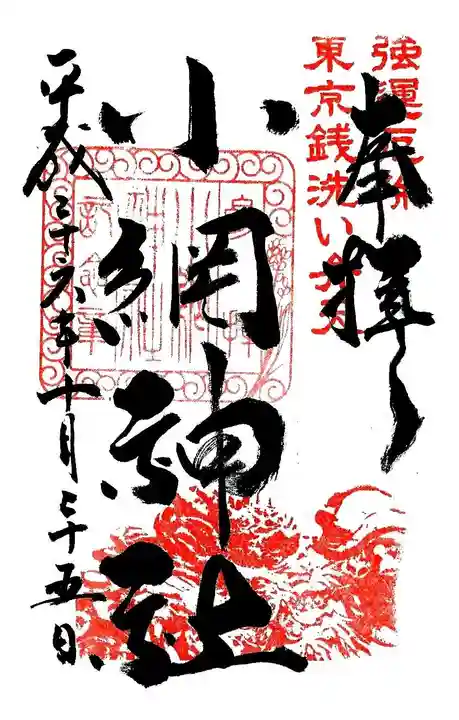 強運厄除
東京銭洗い弁天
奉拝
小網神社
平成二十六年十月二十五日